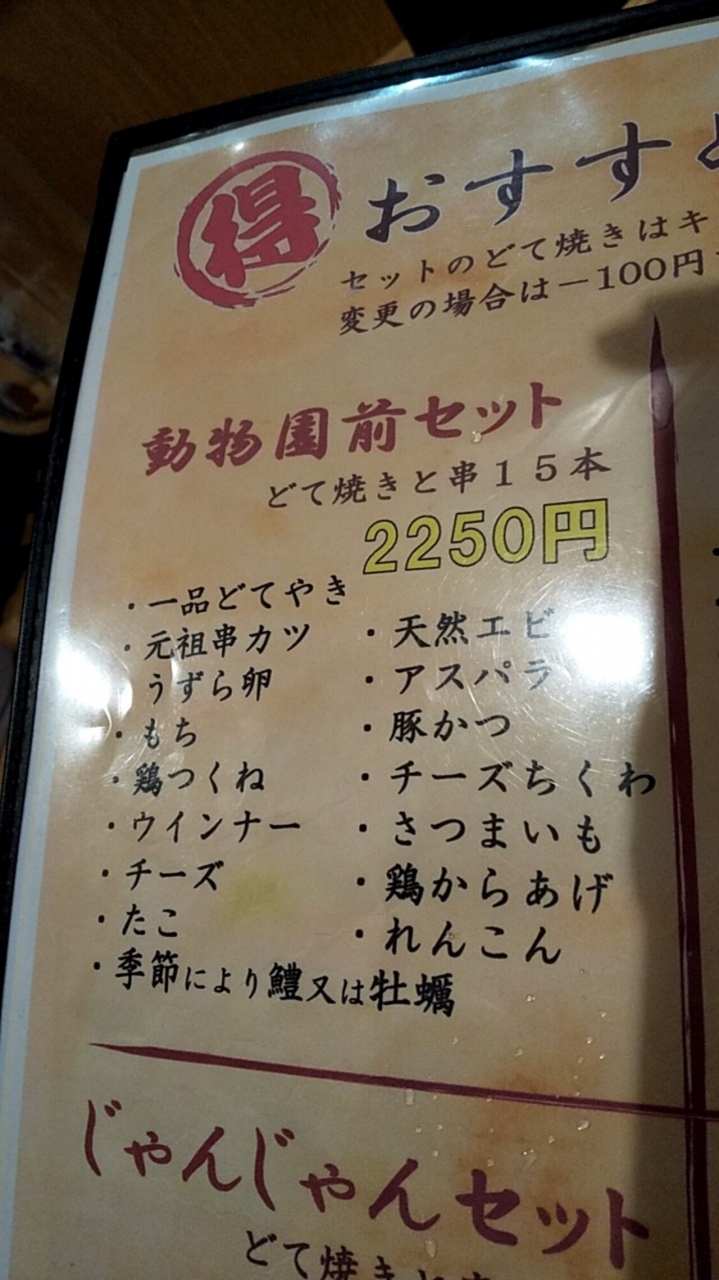 得
おすすめ
セットのどて焼きはキ
変更の場合は－100円
動物園前セット
どて焼きと串１５本
2250円
・一品どてやき
・元祖串カツ
うずら卵
・もち
・鶏つくね
・ウインナー
・チーズ
・たこ
・季節により鱧又は牡蠣
・天然エビ
・アスパラ
・豚かつ
・チーズちくわ
・さつまいも
・鶏からあげ
・れんこん
じゃんじゃんセット
どて焼きと串